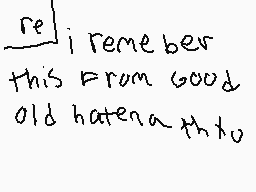 re
i remeber
this From Good
old hatena thxo